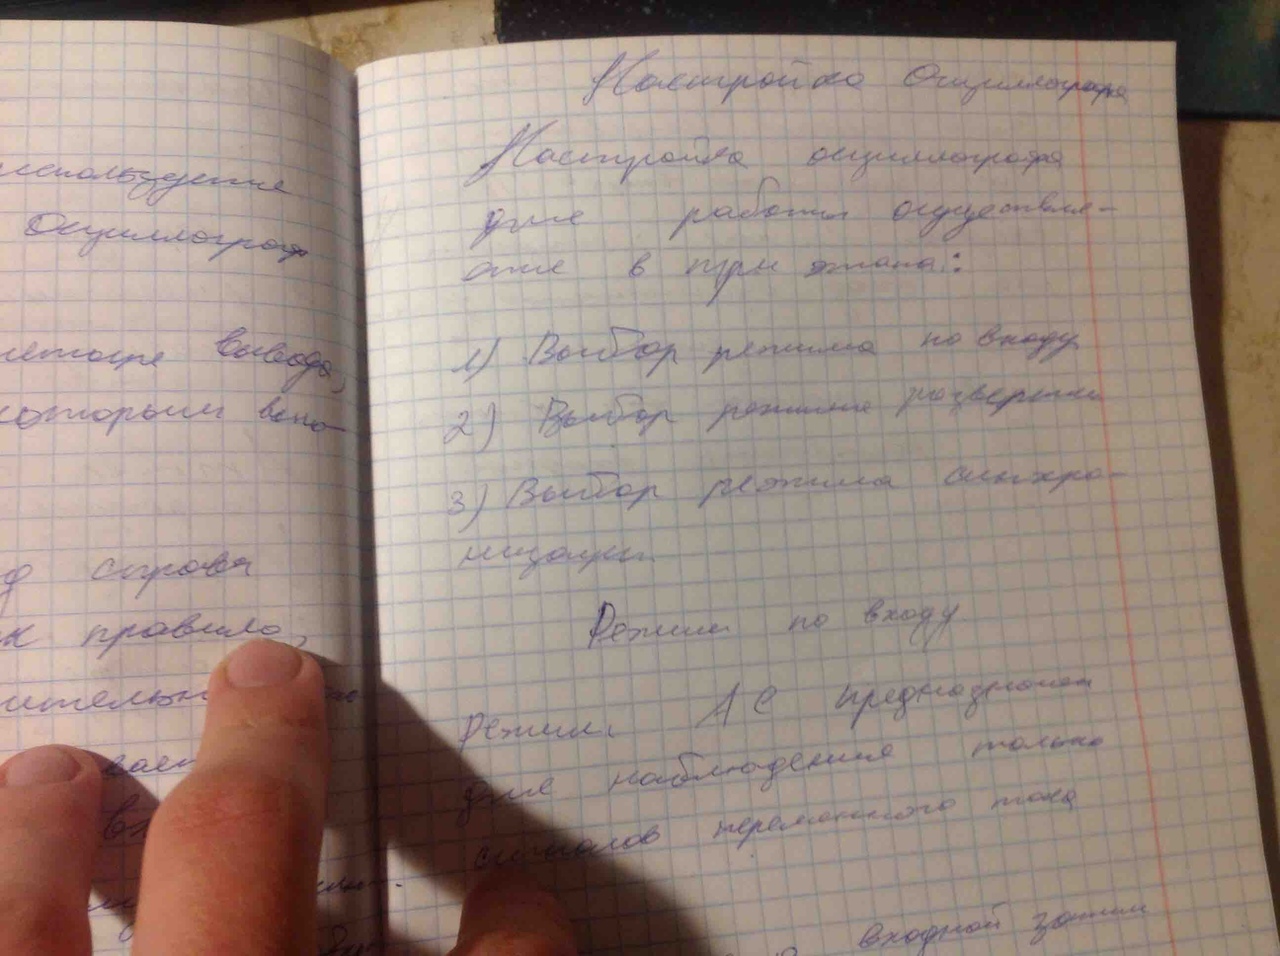 используемые
Осциллограф
вывода,
которым вспо-
справа
к правило,
вает
Настройка Осциллографа
Настройка осциллографа
для работы осуществля-
в три этапа:
1) Выбор режима по входу
2) Выбор режима развертки
3) Выбор режима синхро-
низации.
Режим по входу
Режим AC предназначен
для наблюдения только
сигналов переменного тока
входной зажим